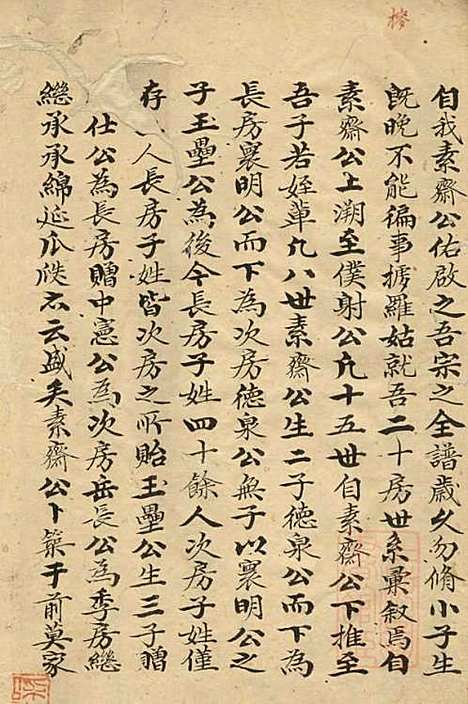 自我素齋公佑啟之吾宗之全譜歲久勿脩小子生
既晚不能徧事摭羅姑就吾二十房世系彙叙焉自
素齋公上溯至僕射公凢十五世自素齋公下推至
吾子若姪輩凢八世素齋公生二子德泉公而下為
長房襄明公而下為次房德泉公無子以襄明公之
子玉壘公為後今長房子姓四十餘人次房子姓僅
存 人長房子姓皆次房之所貽玉壘公生三子贈
仕公為長房贈中憲公為次房岳長公為季房繼
繼承承綿延瓜瓞不云盛矣素齋公卜築于前莫家